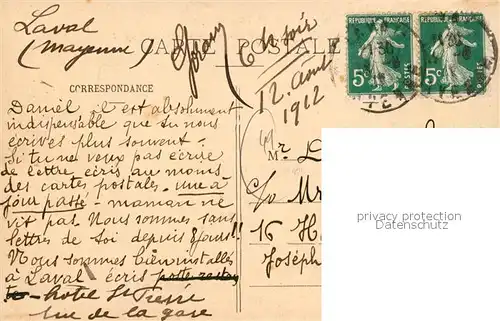 Laval
(Mayenne)
CARTE POSTALE
6h soir
12 Août
1912
REPUBLIQUE FRANÇAISE
5c
POSTES
REPUBLIQUE FRANÇAISE
5c
POSTES
CORRESPONDANCE
Daniel il est absolument
indispensable que tu nous
écrives plus souvent.
Si tu ne veux pas écrire
de lettre écris au moins
des cartes postales. une à
jour passé - maman ne
vit pas. Nous sommes sans
lettres de toi depuis 8 jours!!
Nous sommes bien installés
à Laval écris poste restan
te hotel St Pierre
rue de la gare
Mr
c/o Mr
16 H
Joseph
privacy protection
Datenschutz